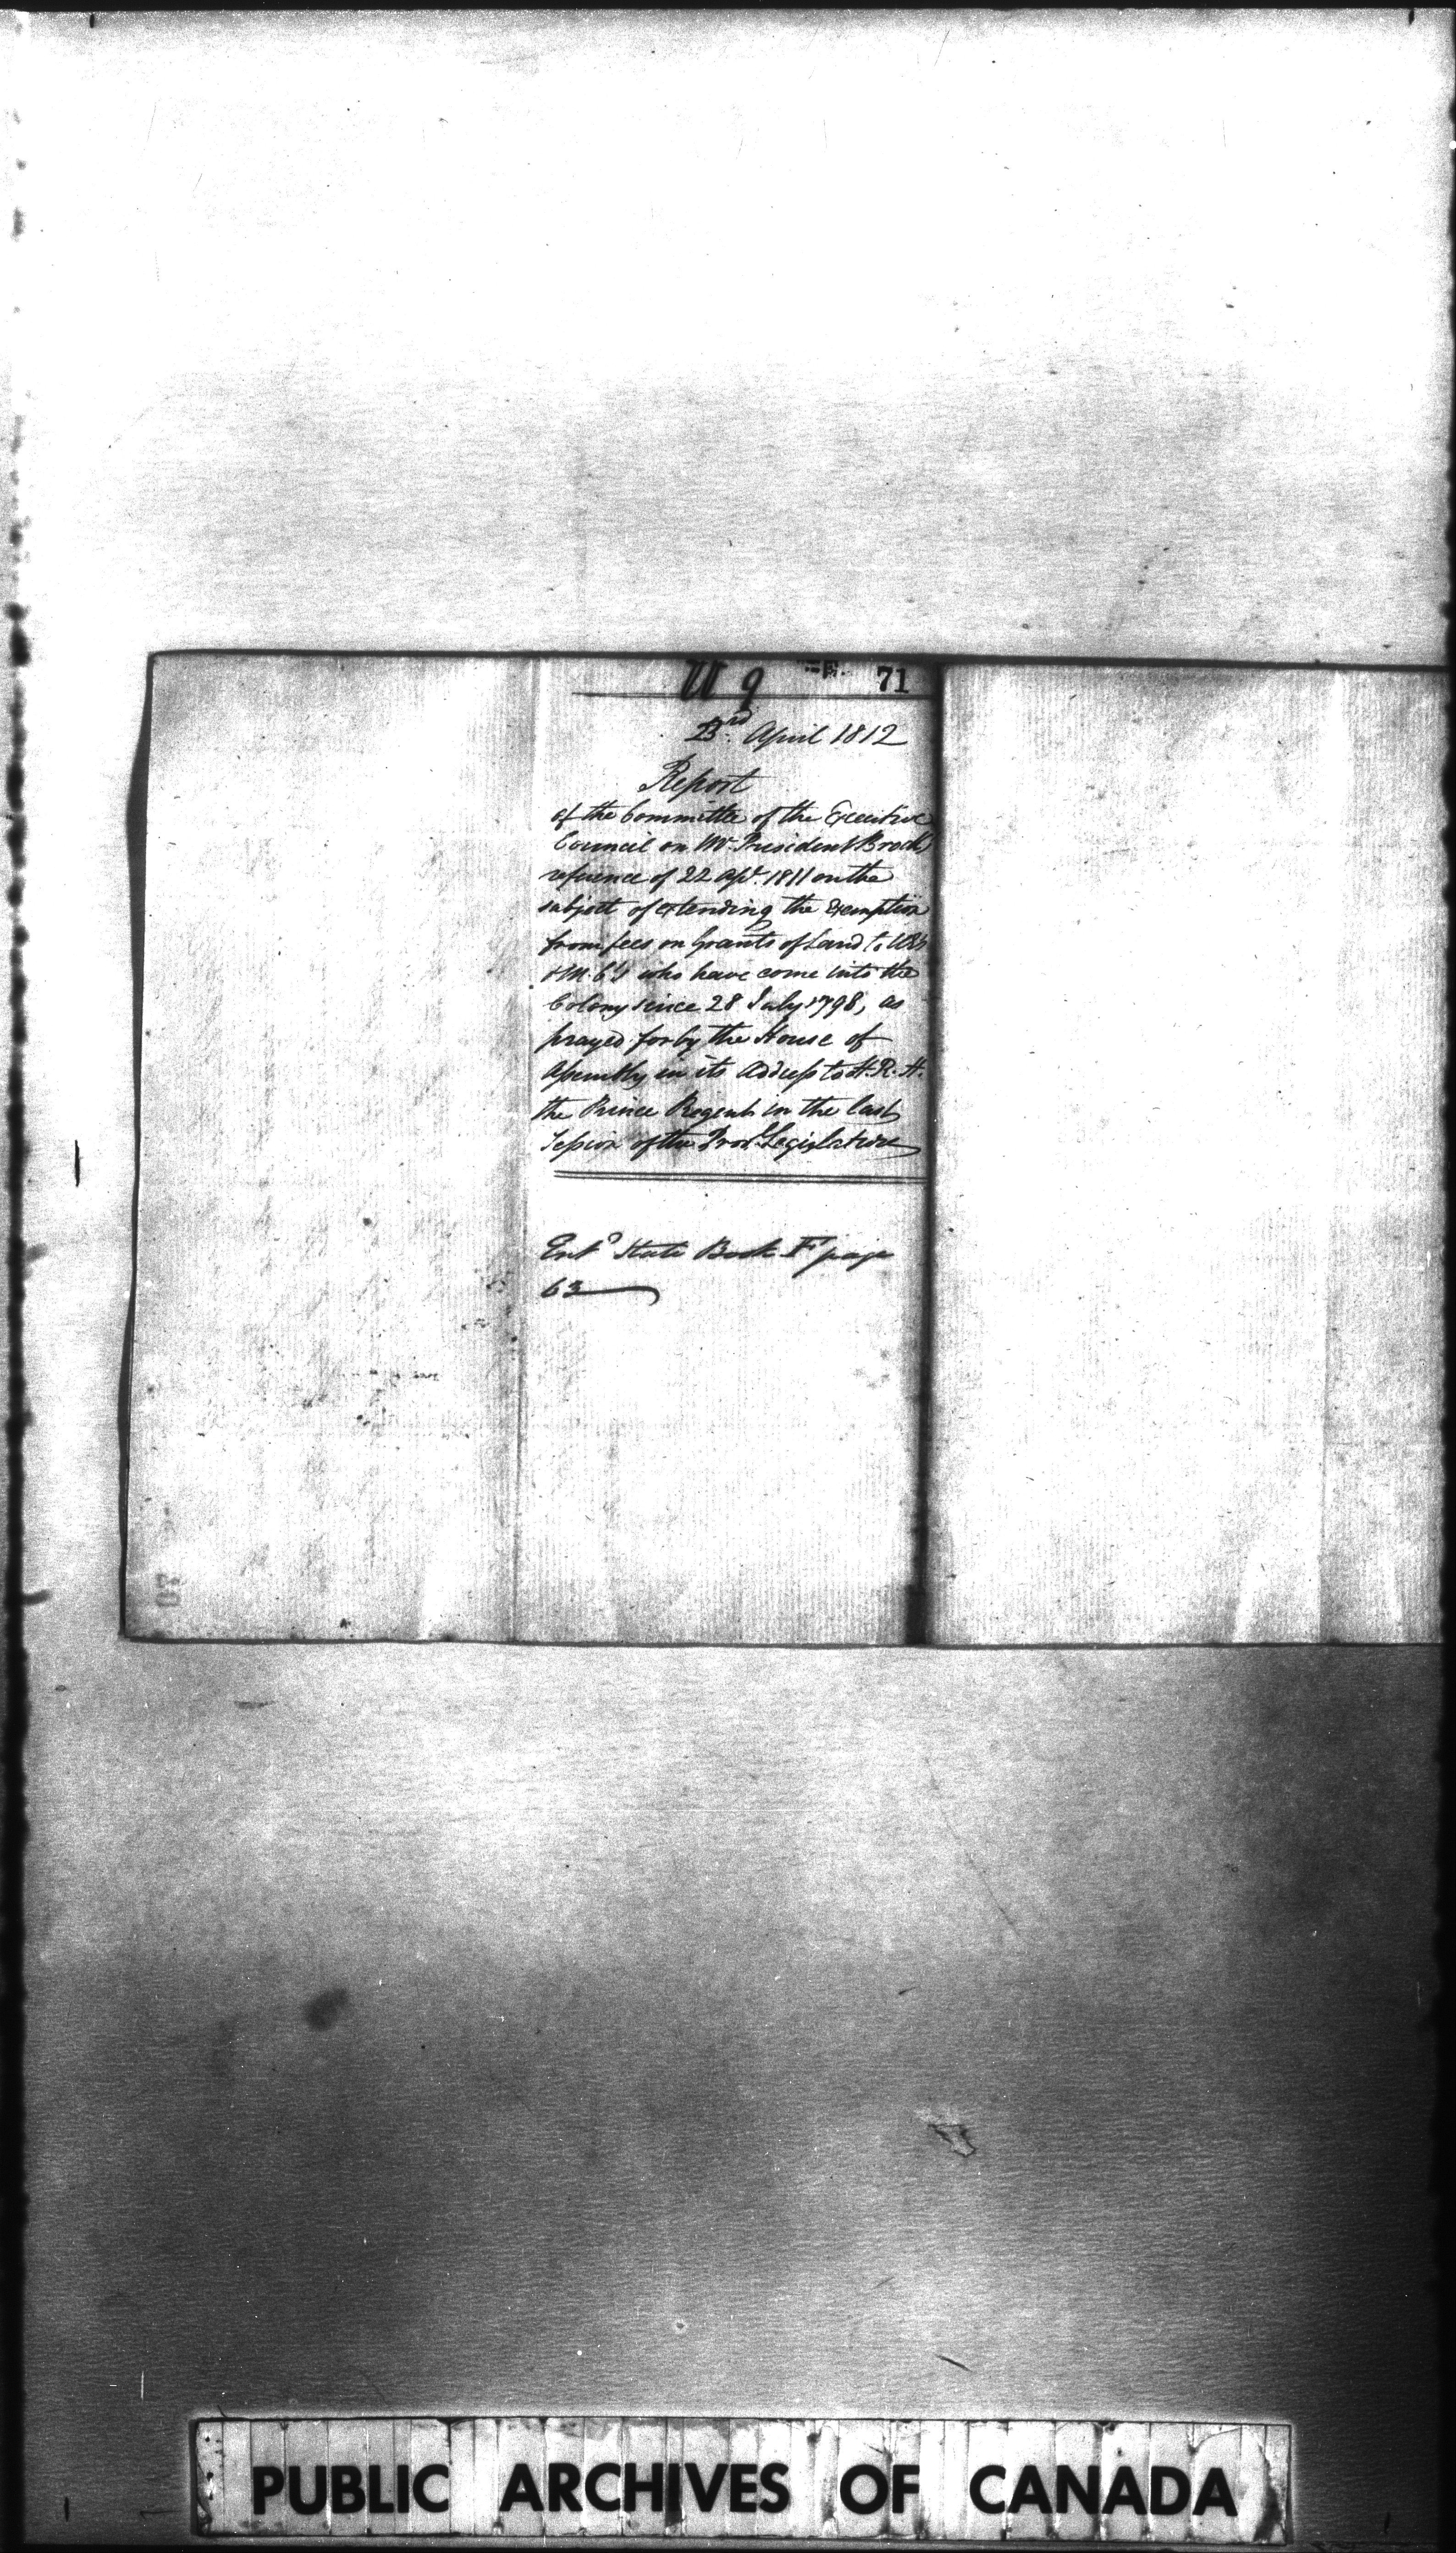 U 9 71
23rd. April 1812
Report
of the Committee of the Executive
Council on Mr. President Brock's
reference of 22 Apl. 1811 on the
subject of extending the Exemption
from fees on Grants of Land to UEs
& M.C's who have come into the
Colony since 28 July 1798, as
prayed for by the House of
Assembly in its Address to H.R.H.
the Prince Regent in the last
Session of the Provl. Legislature
Entd State Book F page
63
PUBLIC ARCHIVES OF CANADA